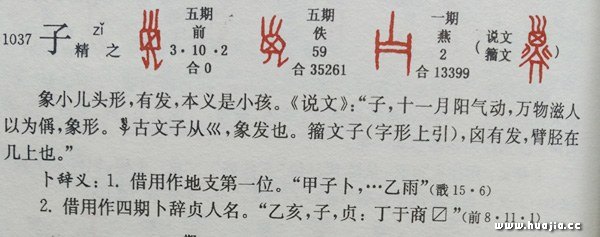 1037 子 zǐ 精 之
五期 前 3·10·2 合0
五期 佚 59 合35261
一期 燕 2 合13399
(说文 籀文)
象小儿头形,有发,本义是小孩。《说文》:“子,十一月阳气动,万物滋人
以为偁,象形。古文子从巛,象发也。籀文子(字形上引),囟有发,臂胫在
几上也。”
卜辞义:1. 借用作地支第一位。“甲子卜,…乙雨”(戬15·6)
2. 借用作四期卜辞贞人名。“乙亥,子,贞:丁于商☑”(前8·11·1)
www.huajia.cc